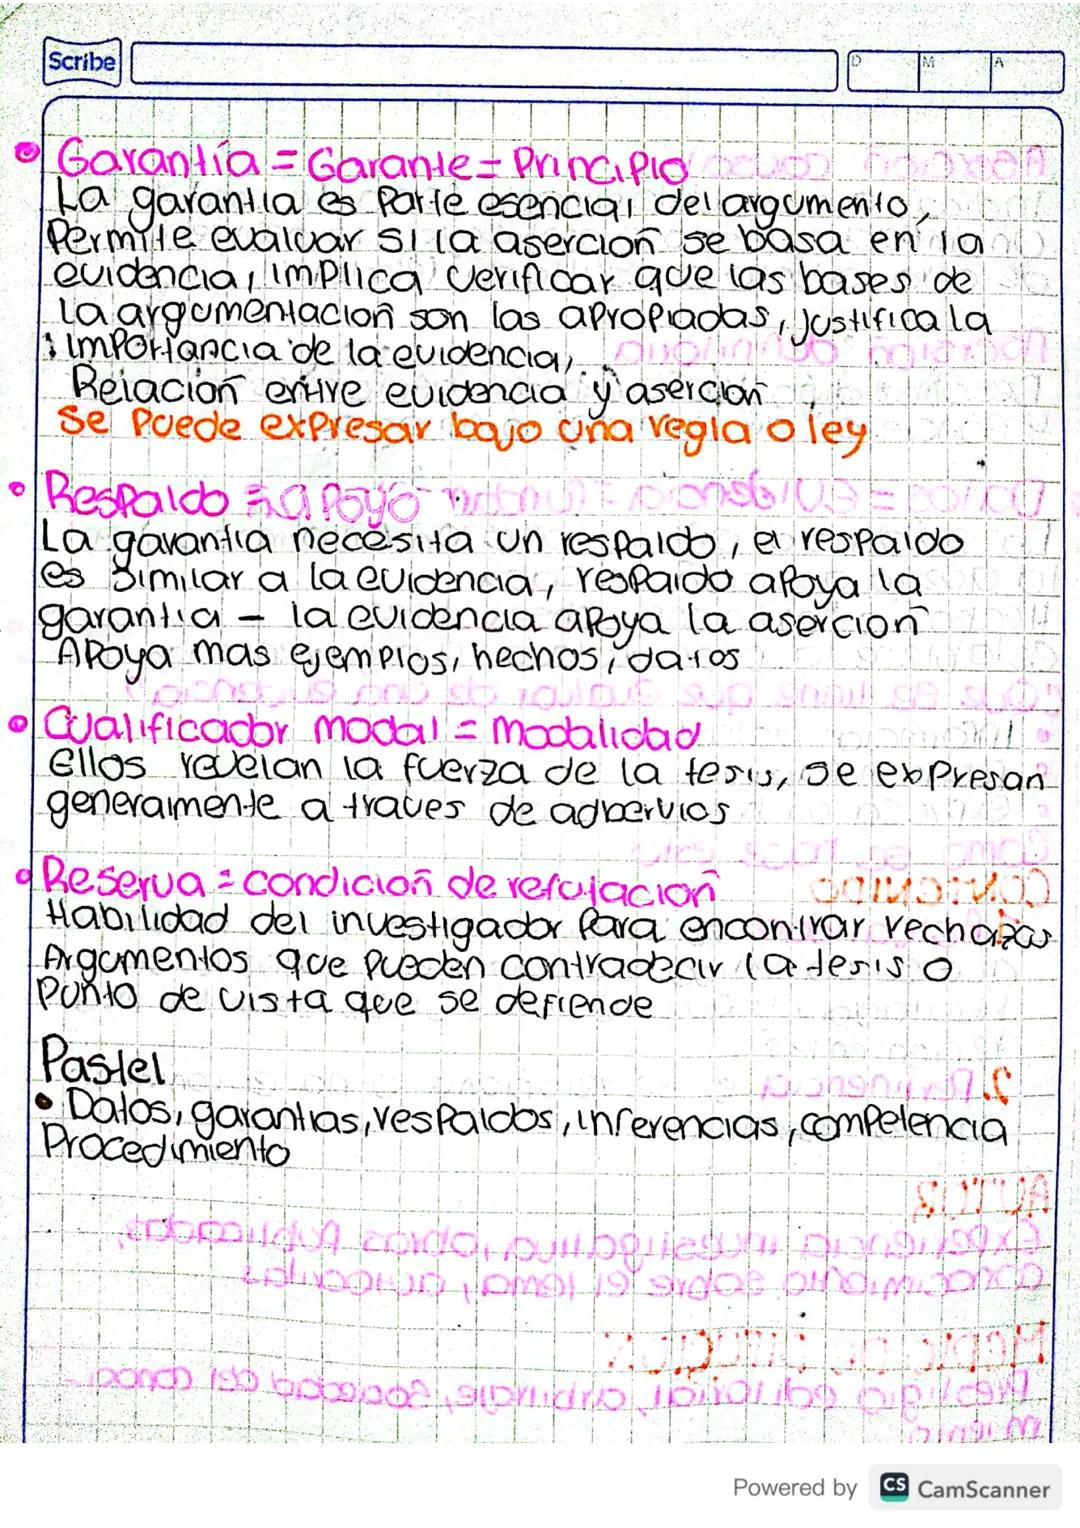 Scribe
D M A
Garantía = Garante = Principio
La garantia es Parte esencial del argumento,
Permite evaluar si la aserción se basa en la
evidencia, implica verificar que las bases de
la argumentación son las apropiadas, justifica la
importancia de la evidencia,
Relación entre evidencia y aserción
Se Puede expresar bajo una regla o ley
Respaldo = apoyo
La garantia necesita un respaldo, el respaldo
es similar a la evidencia, respaldo apoya la
garantia - la evidencia apoya la aserción
Apoya mas ejemplos, hechos, datos
Cualificador modal = Modalidad
Ellos revelan la fuerza de la tesis, se expresan
generalmente a traves de adbervios
Reserva = condición de refutación
Habilidad del investigador Para encontrar rechazas
Argumentos que pueden contradecir la tesis o
Punto de vista que se defiende
Pastel
Datos, garantias, respaldos, inferencias, competencia
Procedimiento
Powered by CS CamScanner